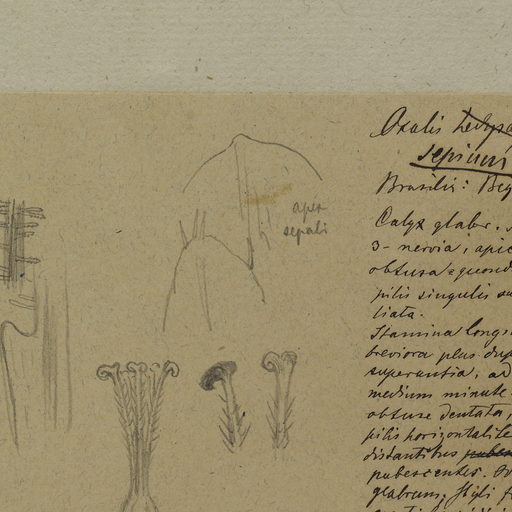 Oxalis
sepium
Brasilia: Beg
apex
sepali
Calyx glaber.
3-nervia, apic
obtusa
pilis singulis
liata.
Stamina longi
breviora plus dup
superantia, ad
medium minute
obtuse dentata,
pilis horizontalite
distantibus
pubescentes.
glabrum, styli